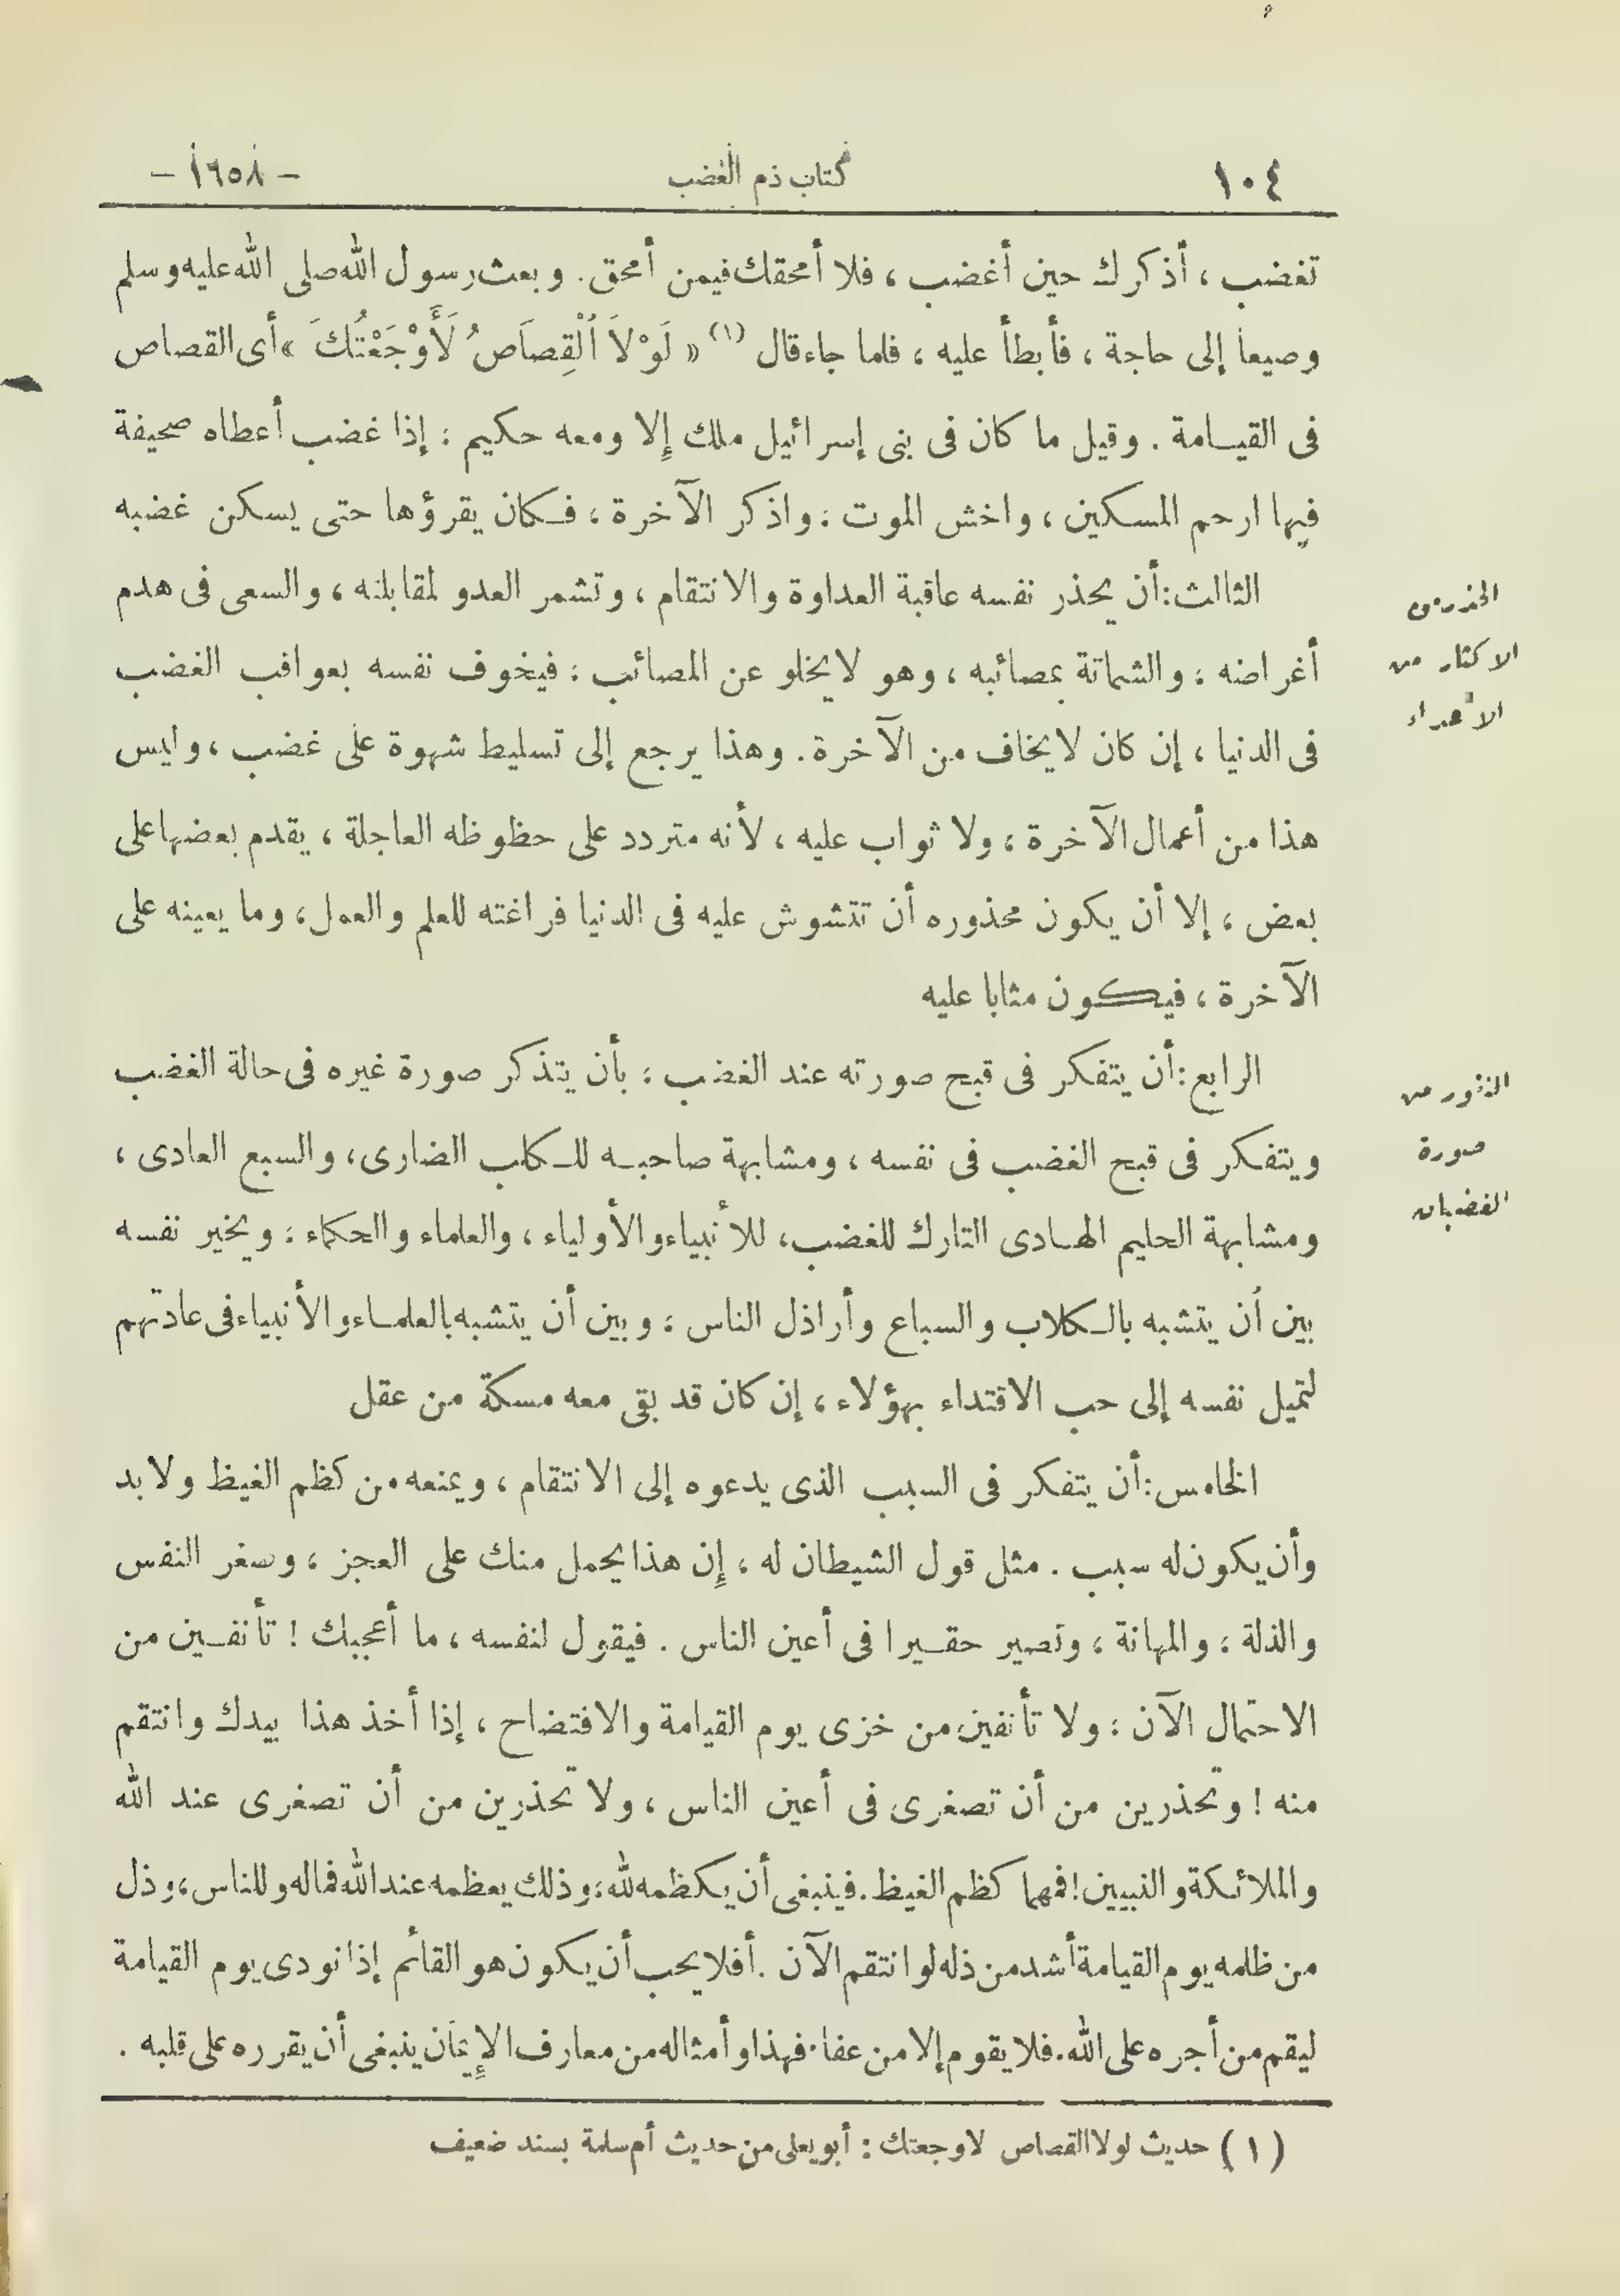 ١٠٤ كتاب ذم الغضب - ١٦٥٨ -
تغضب ، أذكرك حين أغضب ، فلا أمحقك فيمن أمحق . وبعث رسول الله صلى الله عليه وسلم
وصيفا إلى حاجة ، فأبطأ عليه ، فلما جاء قال (١) « لَوْلاَ اَلْقِصَاصُ لَأَوْجَعْتُكَ » أى القصاص
فى القيامة . وقيل ما كان فى بنى إسرائيل ملك إلا ومعه حكيم : إذا غضب أعطاه صحيفة
فيها ارحم المسكين ، واخش الموت ، واذكر الآخرة ، فكان يقرؤها حتى يسكن غضبه
الثالث : أن يحذر نفسه عاقبة العداوة والانتقام ، وتشمر العدو لمقابلته ، والسعى فى هدم
الحذر من
الاكثار من
الأعداء
أغراضه ، والشماتة بمصائبه ، وهو لا يخلو عن المصائب ، فيخوف نفسه بعواقب الغضب
فى الدنيا ، إن كان لا يخاف من الآخرة . وهذا يرجع إلى تسليط شهوة على غضب ، وليس
هذا من أعمال الآخرة ، ولا ثواب عليه ، لأنه متردد على حظوظه العاجلة ، يقدم بعضها على
بعض ، إلا أن يكون محذوره أن تتشوش عليه فى الدنيا فراغته للعلم والعمل ، وما يعينه على
الآخرة ، فيكون مثابا عليه
الرابع : أن يتفكر فى قبح صورته عند الغضب ، بأن يتذكر صورة غيره فى حالة الغضب
من
صورة
الغضبان
ويتفكر فى قبح الغضب فى نفسه ، ومشابهة صاحبه للكلب الضارى ، والسبع العادى ،
ومشابهة الحليم الهادى التارك للغضب ، للأنبياء والأولياء ، والعلماء والحكماء ، ويخير نفسه
بين أن يتشبه بالكلاب والسباع وأراذل الناس ، وبين أن يتشبه بالعلماء والأنبياء فى عادتهم
لتميل نفسه إلى حب الاقتداء بهؤلاء ، إن كان قد بقى معه مسكة من عقل
الخامس : أن يتفكر فى السبب الذى يدعوه إلى الانتقام ، ويمنعه من كظم الغيظ ولا بد
وأن يكون له سبب . مثل قول الشيطان له ، إن هذا يحمل منك على العجز ، وصغر النفس
والذلة ، والمهانة ، وتصير حقيرا فى أعين الناس . فيقول لنفسه ، ما أعجبك ! تأنفين من
الاحتمال الآن ، ولا تأنفين من خزى يوم القيامة والافتضاح ، إذا أخذ هذا بيدك وانتقم
منه ! وتحذرين من أن تصغرى فى أعين الناس ، ولا تحذرين من أن تصغرى عند الله
والملائكة والنبيين ! فمهما كظم الغيظ . فينبغى أن يكظمه لله ، وذلك يعظمه عند الله فماله وللناس ، وذل
من ظلمه يوم القيامة أشد من ذله لو انتقم الآن . أفلا يحب أن يكون هو القائم إذا نودى يوم القيامة
ليقم من أجره على الله . فلا يقوم إلا من عفا . فهذا وأمثاله من معارف الإيمان ينبغى أن يقرره على قلبه .
( ١ ) حديث لولا القصاص لاوجعتك : أبو يعلى من حديث أم سلمة بسند ضعيف